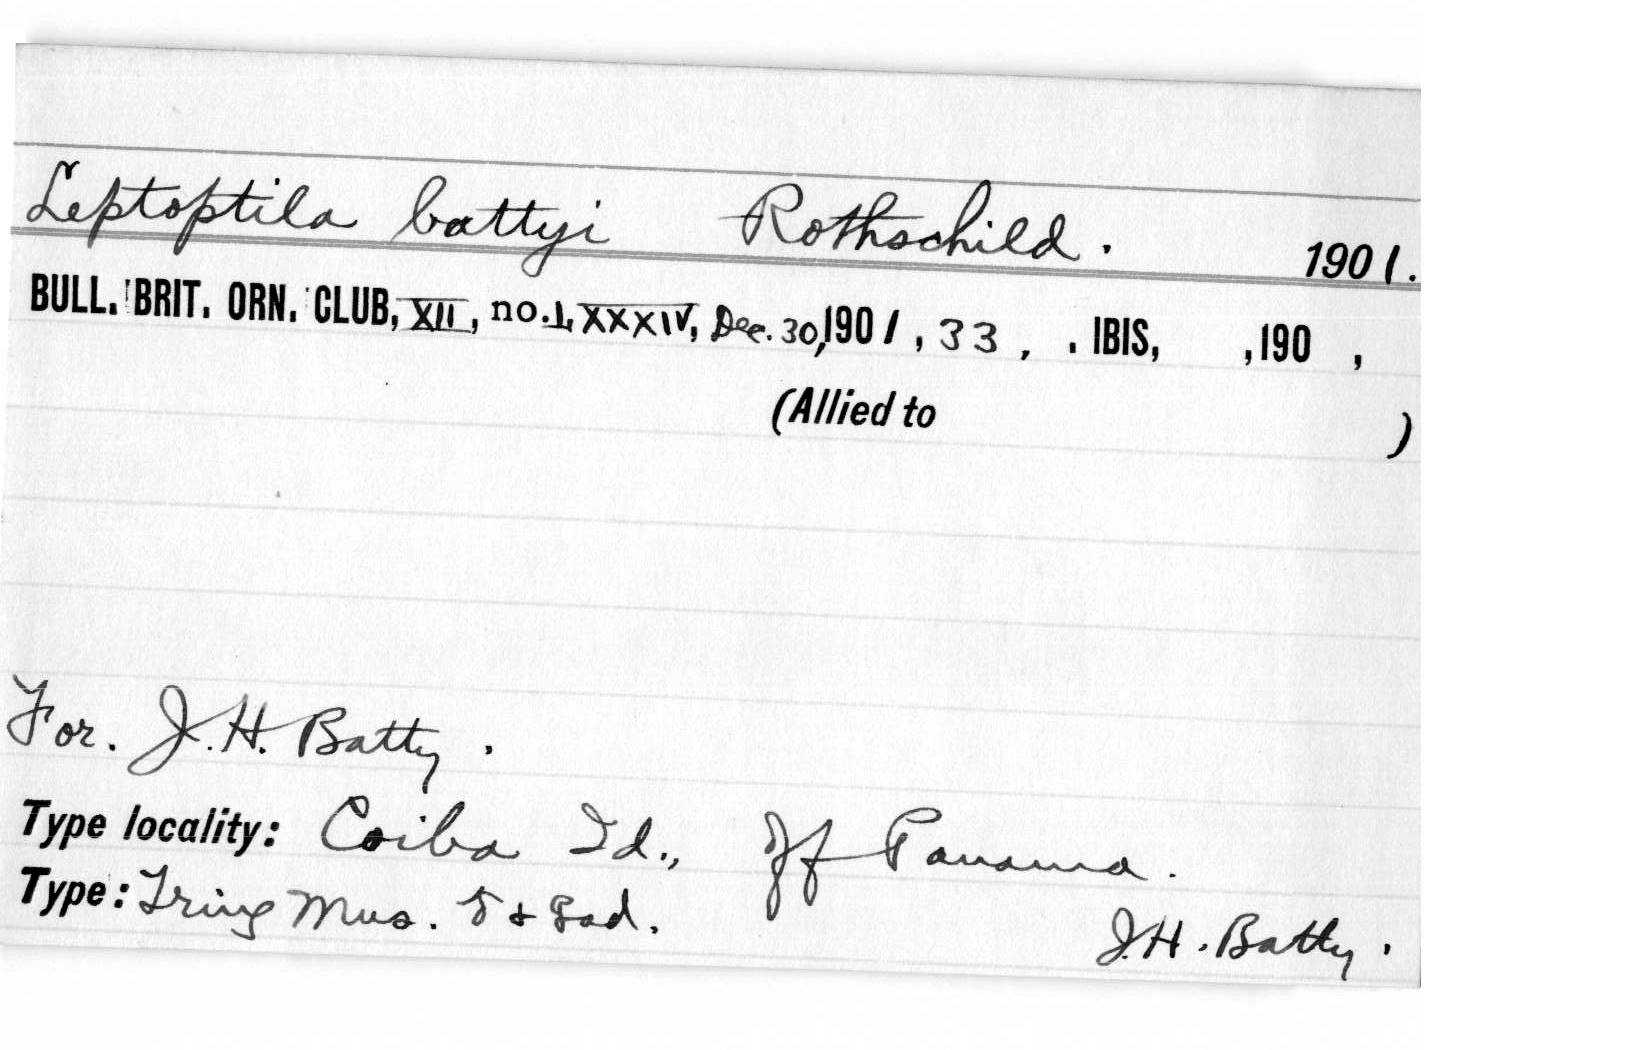 Leptoptila battyi Rothschild. 1901.
BULL. BRIT. ORN. CLUB, XII, no. LXXXIV, Dec. 30, 1901, 33, . IBIS, , 190 ,
(Allied to )
For. J.H. Batty.
Type locality: Coiba Id., off Panama.
Type: Tring Mus. ad.
J.H. Batty.